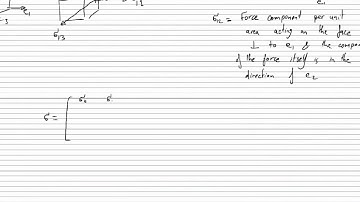 e₁
σ₁₃
e₁
σ₁₂ = Force component per unit
area acting on the face
⊥ to e₁ & the component
of the force itself is in the
direction of e₂
σ = [ σ₁₁ σ